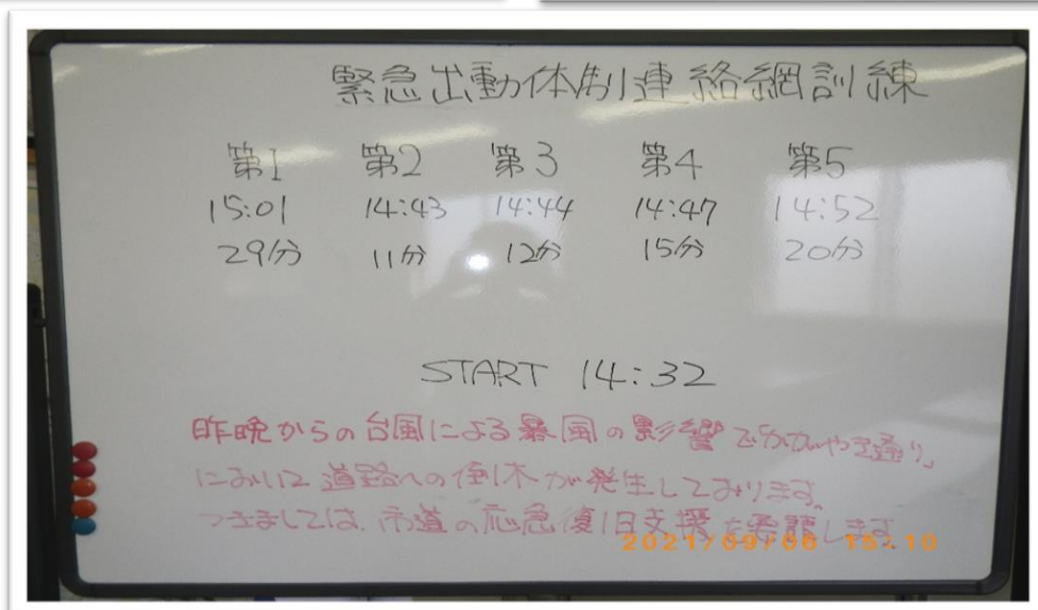 緊急出動体制連絡網訓練
第1 第2 第3 第4 第5
15:01 14:43 14:44 14:47 14:52
29分 11分 12分 15分 20分
START 14:32
昨晩からの台風による暴風の影響で「かがやき通り」
において道路への倒木が発生しております。
つきましては、市道の応急復旧支援を要請します。
2021/09/06 15:10